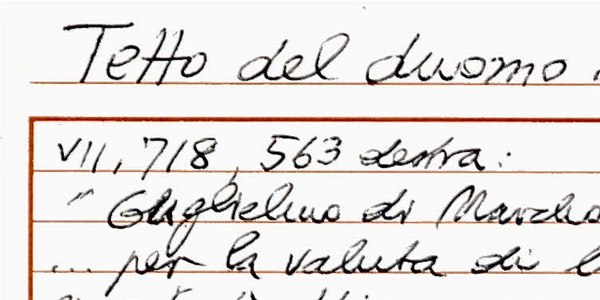 Tetto del duomo
VII, 718, 563 destra:
"Guglielmo di
... per la valuta di